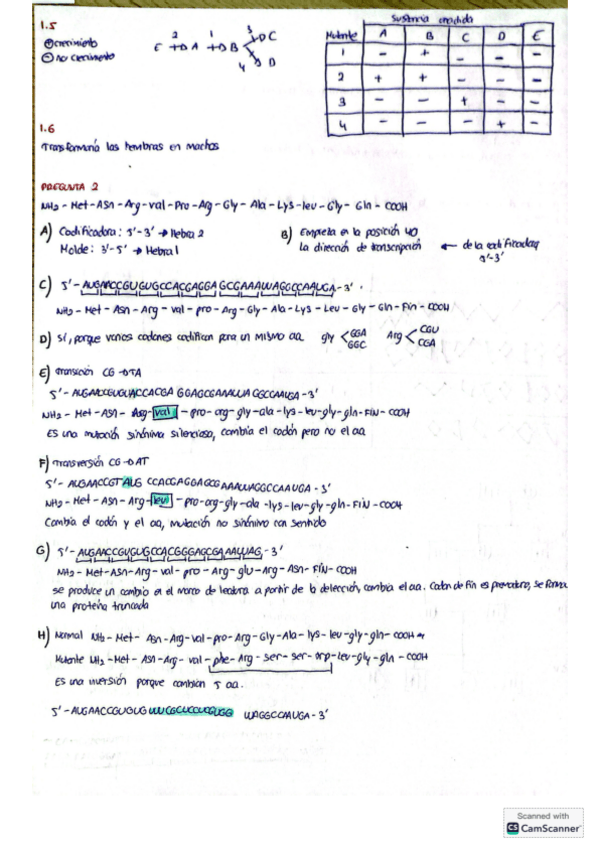 1.5
⊕ crecimiento
⊖ no crecimiento
E 2→ A 1→ B 3→ C
4→ D
Sustancia añadida
Mutante A B C D E
1 - + - - -
2 + + - - -
3 - - + - -
4 - - - + -
1.6
Transformaría las hembras en machos
PREGUNTA 2
NH2 - Met - Asn - Arg - val - Pro - Arg - Gly - Ala - Lys - leu - Gly - Gln - COOH
A) Codificadora: 5'-3' → Hebra 2
Molde: 3'-5' → Hebra 1
B) Empieza en la posición 40
la dirección de transcripción ← de la codificadora
C) 5'- AUGAACCGUGUGCCACGAGGAGCGAAAUUAGGCCAAUGA - 3'
NH2 - Met - Asn - Arg - val - pro - Arg - Gly - Ala - Lys - Leu - Gly - Gln - Fin - COOH
D) Sí, porque varios codones codifican para un mismo aa. gly < GGA GGC Arg < CGU CGA
E) transición CG → TA
NH2 - Met - Asn - Arg - val - pro - arg - gly - ala - lys - leu - gly - gln - FIN - COOH
Es una mutación sinónima silenciosa, cambia el codón pero no el aa
F) Transversión CG → AT
NH2 - Met - Asn - Arg - leu - pro - arg - gly - ala - lys - leu - gly - gln - FIN - COOH
Cambia el codón y el aa, mutación no sinónimo con sentido
G) 5'- AUGAACCGUGUGCCACGGGAGCGAAAUUAG - 3'
NH2 - Met - Asn - Arg - val - pro - Arg - glu - Arg - Asn - FIN - COOH
se produce un cambio en el marco de lectura a partir de la delección, cambia el aa. Codon de Fin es prematuro, se forma
una proteína truncada
H) Normal NH2 - Met - Asn - Arg - val - pro - Arg - Gly - Ala - lys - leu - gly - gln - COOH
Mutante NH2 - Met - Asn - Arg - val - phe - Arg - ser - ser - trp - leu - gly - gln - COOH
Es una inversión porque cambian 5 aa.
5'- AUGAACCGUGUG UUUCGCUCCUCGUGG UUAGGCCAAUGA - 3'
Scanned with
CS CamScanner